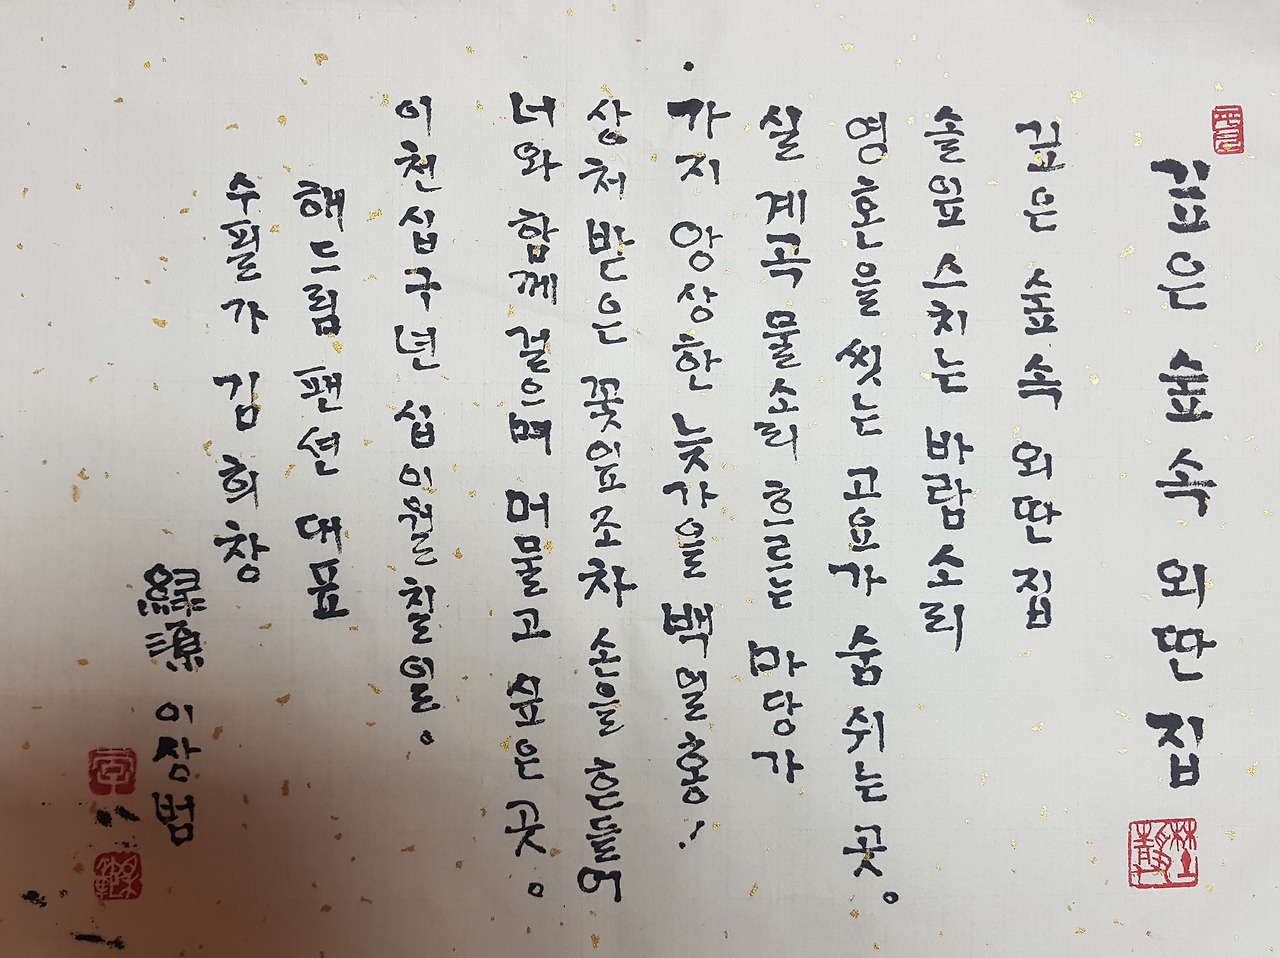 깊은 숲속 외딴 집
깊은 숲속 외딴 집
솔잎 스치는 바람소리
영혼을 씻는 고요가 숨쉬는 곳。
실계곡 물소리 흐르는 마당가
가지 앙상한 늦가을 백일홍!
상처받은 꽃잎조차 손을 흔들어
너와 함께 걸으며 머물고 싶은 곳。
이천십구년 십이월 칠일。
해드림 팬션 대표
수필가 김희창
綠源 이상범